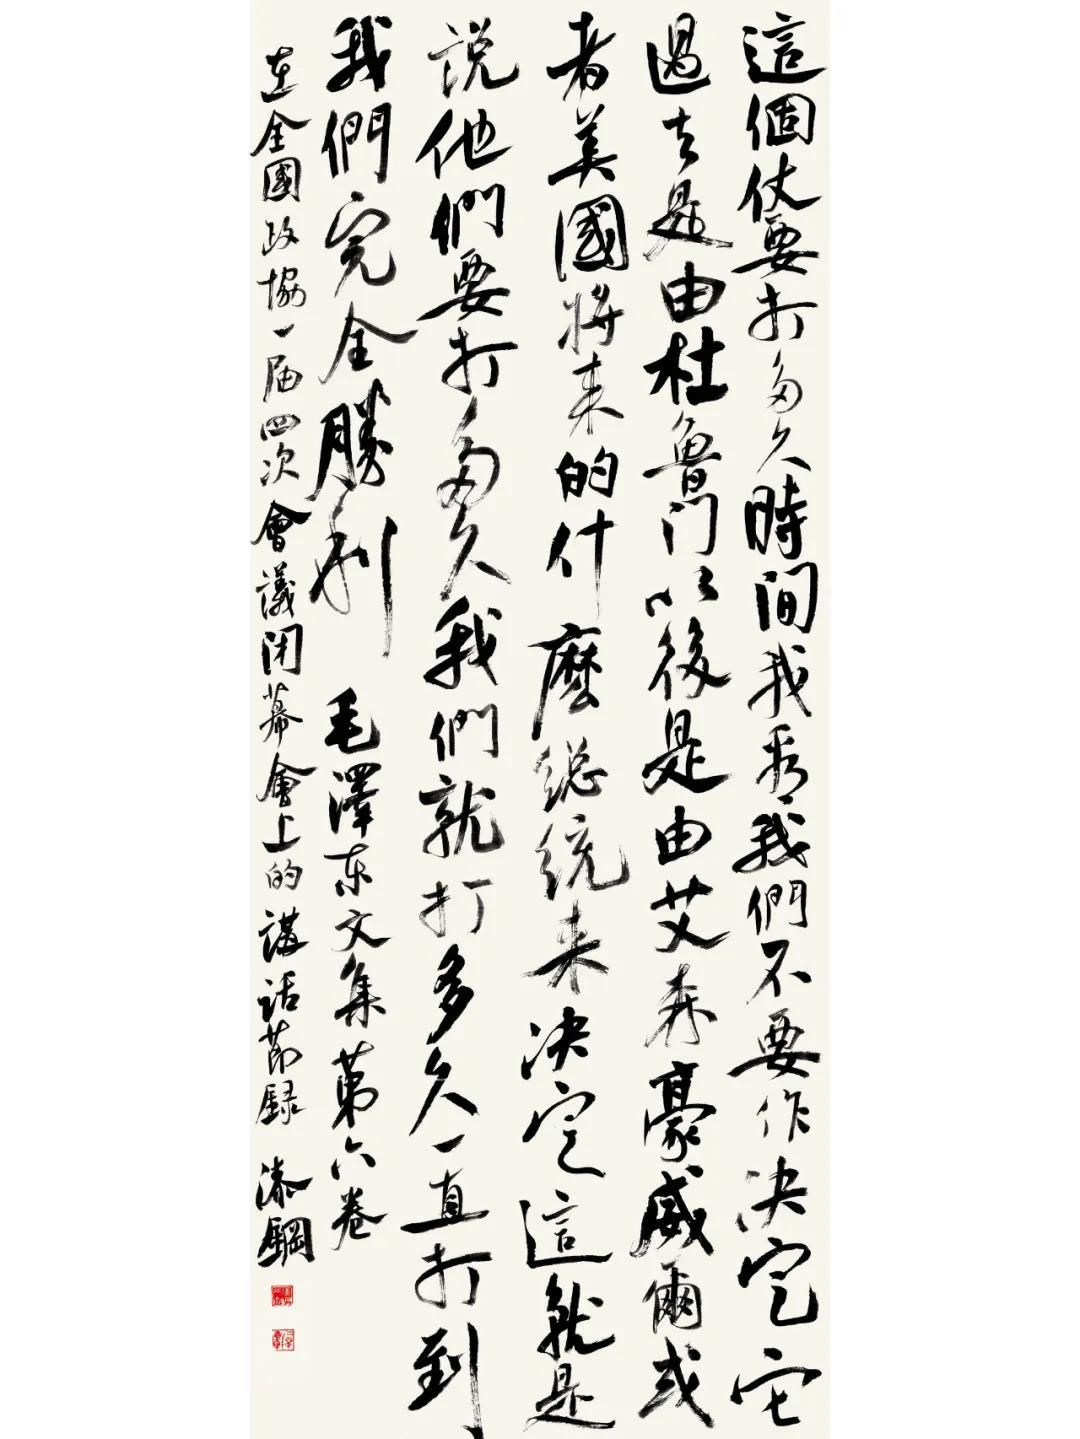 這個仗要打多久時间我看我們不要作决定它
過去是由杜魯门以後是由艾森豪威爾或
者美國将来的什麼総统来决定這就是
说他們要打多久我們就打多久一直打到
我們完全勝利 毛澤东文集第六卷
在全國政協一届四次會議闭幕會上的講話節録 鋼